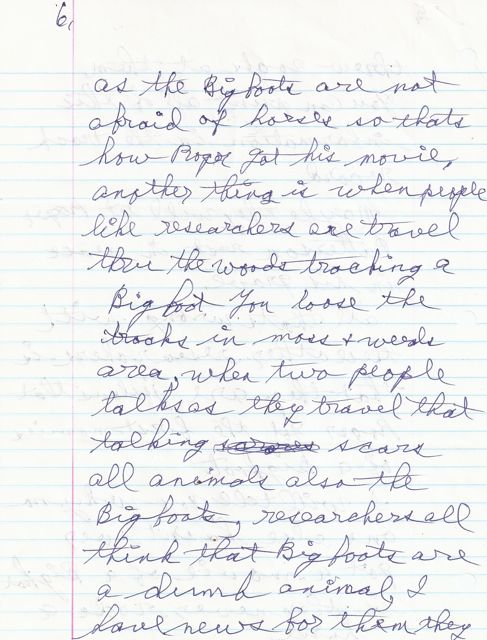 6.
as the Bigfoots are not
afraid of horses so thats
how Roger got his movie,
another thing is when people
like researchers are travel
thru the woods tracking a
Bigfoot You loose the
tracks in moss + weeds
area, when two people
talks as they travel that
talking scars
all animals also the
Bigfoots, researchers all
think that Bigfoots are
a dumb animal, I
have news for them they